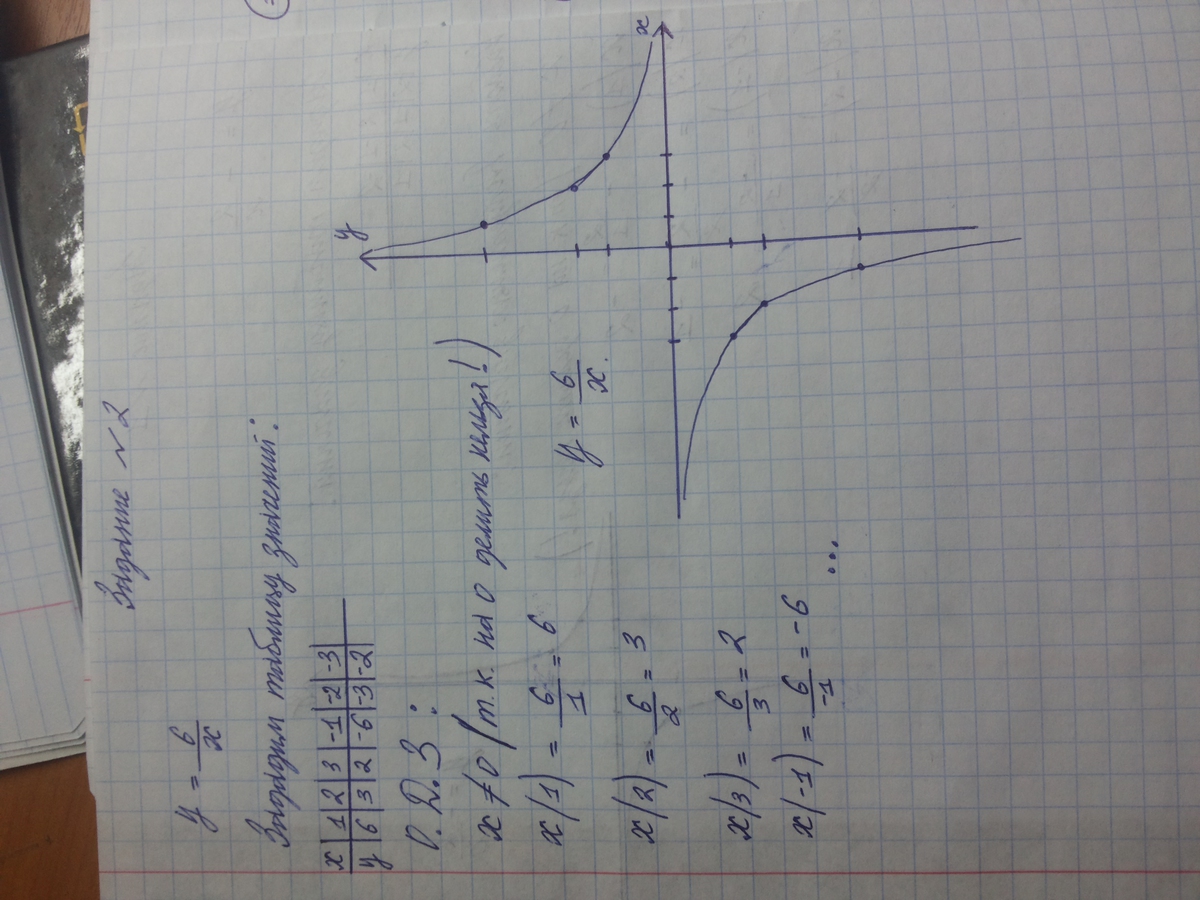 Задание №2
y = 6/x
Зададим таблицу значений:
x | 1 | 2 | 3 | -1 | -2 | -3 |
y | 6 | 3 | 2 | -6 | -3 | -2 |
О.Д.З:
x ≠ 0 (т.к. на 0 делить нельзя!)
x(1) = 6/1 = 6
x(2) = 6/2 = 3
x(3) = 6/3 = 2
x(-1) = 6/-1 = -6
...
y = 6/x.
y
x